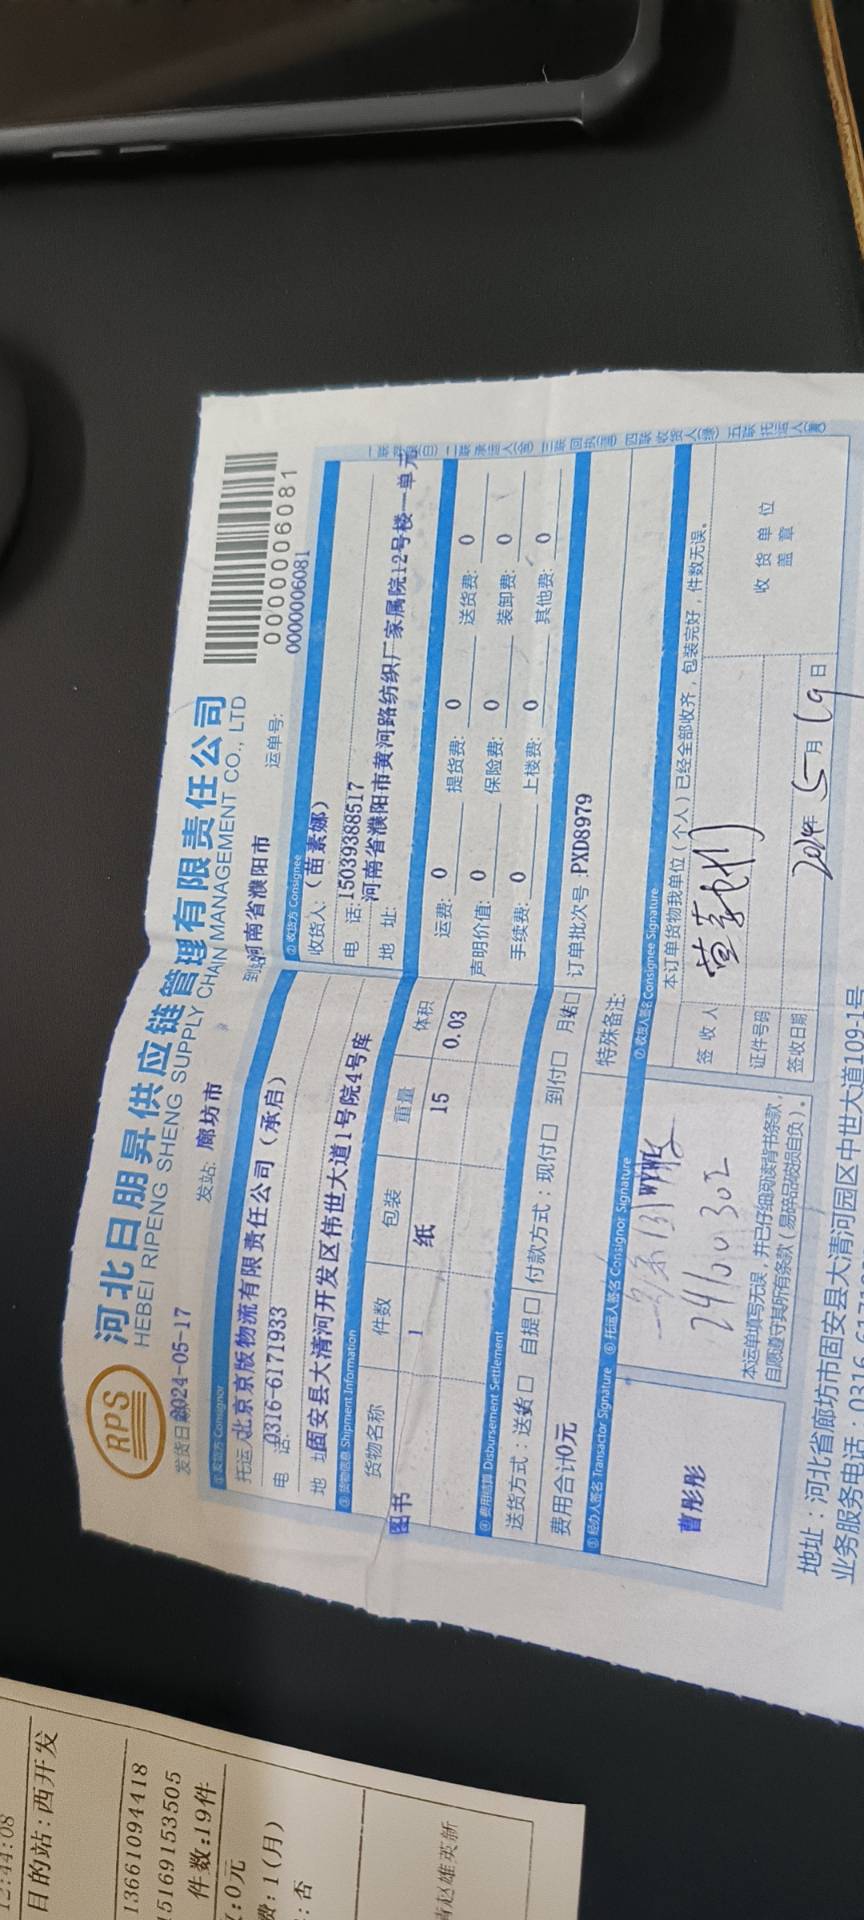 RPS
河北日朋昇供应链管理有限责任公司
HEBEI RIPENG SHENG SUPPLY CHAIN MANAGEMENT CO., LTD
0000006081
发货日期 2024-05-17
发站: 廊坊市
到站 河南省濮阳市
运单号: 0000006081
①发货方 Consignor
托运人 北京京版物流有限责任公司（承启）
电 话: 0316-6171933
地 址 固安县大清河开发区伟世大道1号院4号库
②收货方 Consignee
收货人:（苗素娜）
电 话: 15039388517
地 址: 河南省濮阳市黄河路纺织厂家属院12号楼一单元
③货物信息 Shipment Information
货物名称 件数 包装 重量 体积
图书 1 纸 15 0.03
运费: 0 提货费: 0 送货费: 0
声明价值: 0 保险费: 0 装卸费: 0
手续费: 0 上楼费: 0 其他费: 0
④费用结算 Disbursement Settlement
送货方式：送货口 自提口 付款方式：现付口 到付口 月结口
订单批次号:PXD8979
费用合计0元
特殊备注:
⑤经办人签名 Transactor Signature
曹彤彤
⑥托运人签名 Consignor Signature
WYWL
24100302
本运单填写无误，并已仔细阅读背书条款，
自愿遵守其所有条款（易碎品破损自负）。
⑦收货人签名Consignee Signature
本订单货物我单位（个人）已经全部收齐，包装完好，件数无误。
签 收 人
证件号码
签收日期 2024年 5月 19日
收 货 单 位
盖 章
地址：河北省廊坊市固安县大清河园区中世大道1091号
业务服务电话：0316
12:44:08
目的站:西开发
13661094418
15169153505
件数:19件
:0元
费:1(月)
:否
赵雄英新